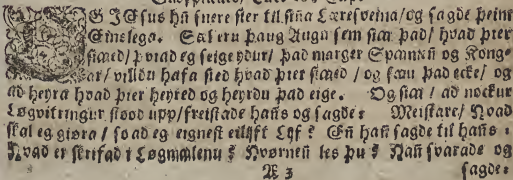 OG JEsus hañ snere sier til siña Læresveina/og sagde þeim
Einslega. Sæl eru þaug Augu sem siaa þad/ hvad þier
siaaed/ þviad eg seige ydur/ þad marger Spameñ og Kong-
ar/ villdu hafa sied hvad þier siaaed / og saau þad ecke/ og
ad heyra hvad þier heyred og heyrdu þad eige. Og siaa / ad nockur
Løgvitringur stood upp/ freistade hañs og sagde: Meistare/ Hvad
skal eg giøra / so ad eg eignest eilijft Lijf? Eñ hañ sagde til hañs:
Hvad er skrifad i Løgmaalenu? Hvørneñ les þu? Hañ svarade og
A 3 sagde: